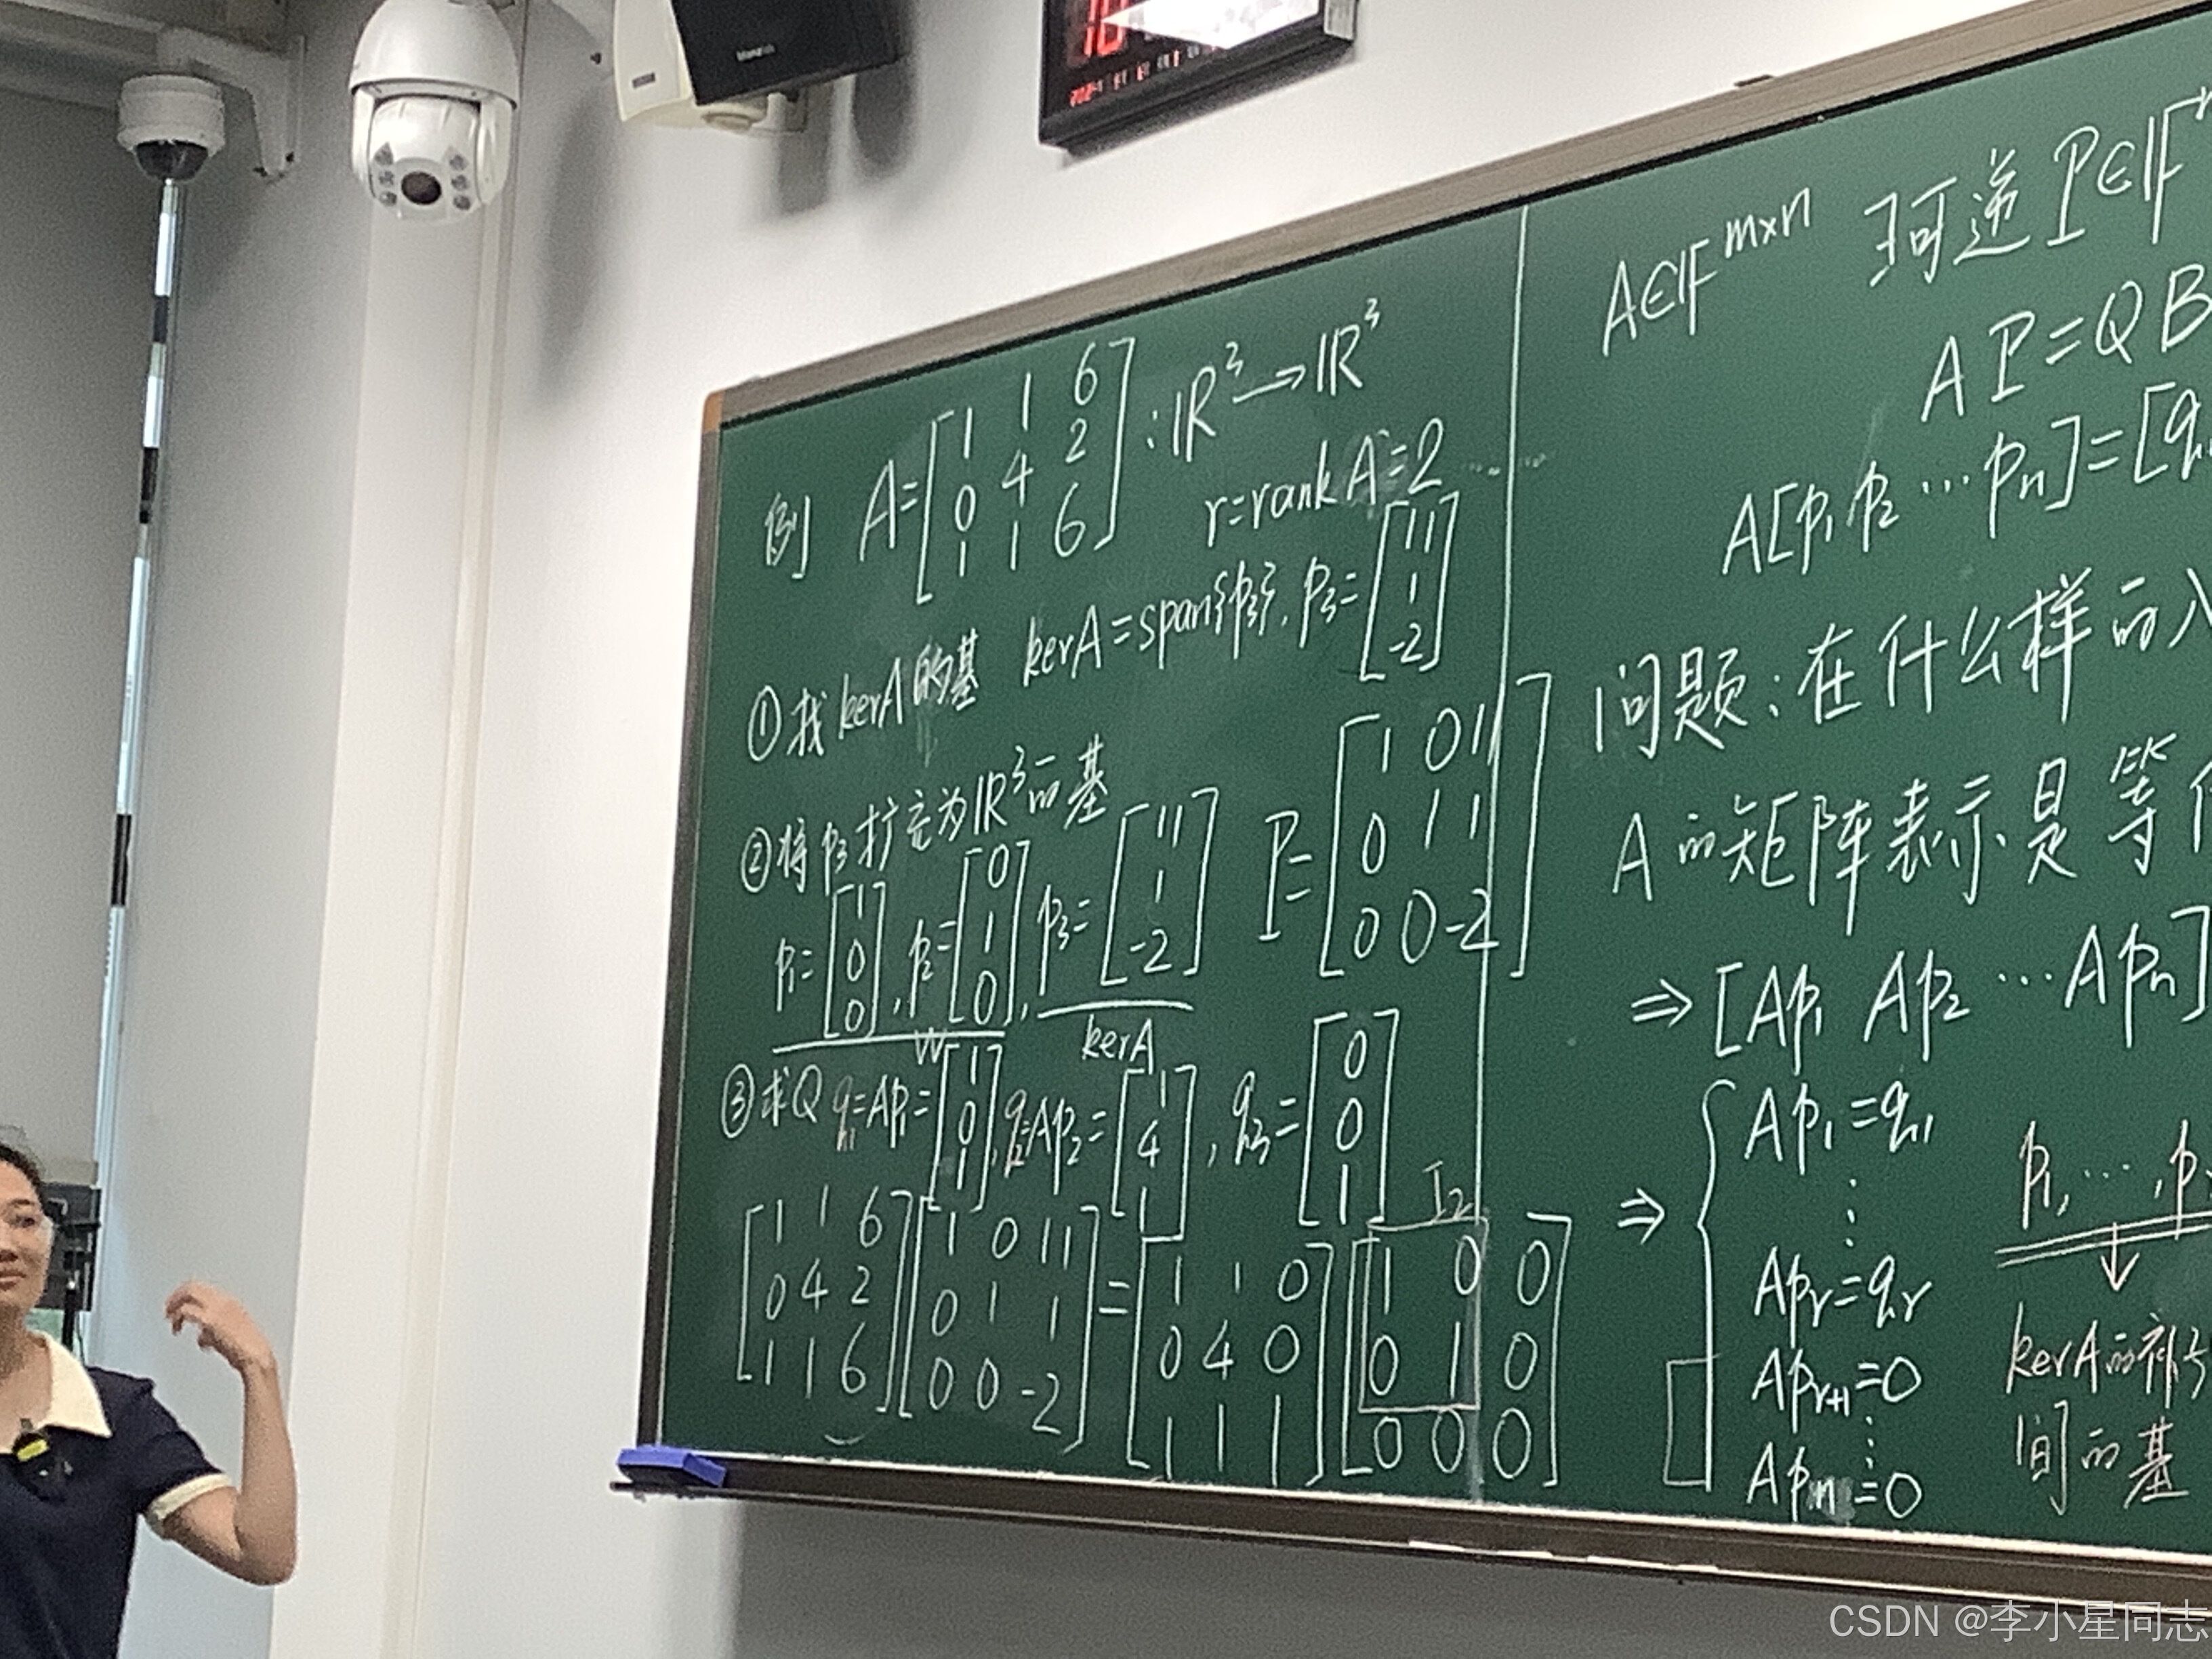 例 A=[1 1 6
0 4 2
1 1 6] : ℝ³→ℝ³
r=rankA=2
①找kerA的基 kerA=span{p₃}, p₃=[11
1
-2]
②将p₃扩充为ℝ³的基
p₁=[1
0
0], p₂=[0
1
0], p₃=[11
1
-2] P=[1 0 11
0 1 1
0 0 -2]
W kerA
③求Q q₁=Ap₁=[1
0
1], q₂=Ap₂=[1
4
1], q₃=[0
0
1]
I₂
[1 1 6
0 4 2
1 1 6][1 0 11
0 1 1
0 0 -2]=[1 1 0
0 4 0
1 1 1][1 0 0
0 1 0
0 0 0]
A∈𝔽^{m×n} ∃可逆P∈𝔽
AP=QB
A[p₁ p₂ … pₙ]=[q₁
问题:在什么样的入
A的矩阵表示是等
⇒[Ap₁ Ap₂ … Apₙ]
⇒{Ap₁=q₁
⋮
Apᵣ=qᵣ
Apᵣ₊₁=0
⋮
Apₙ=0
p₁, …, p
↓
kerA的补
间的基
CSDN @李小星同志